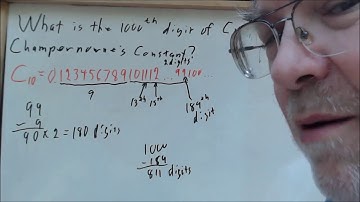 What is the 1000th digit of C
Champernowne's Constant?
2 digits
C10=0.123456789101112...99100...
9
13th 15th
189th
digit
99
- 9
90 x 2 = 180 digits
1000
-189
811 digits